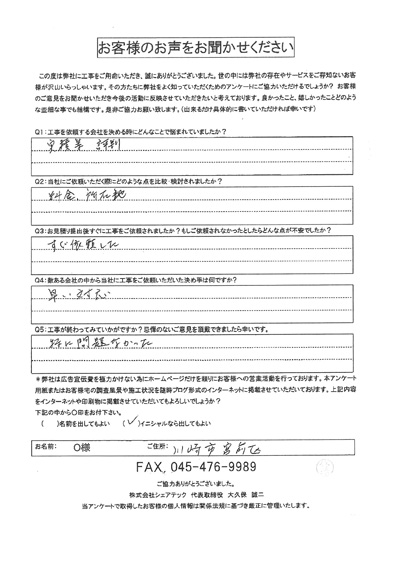 お客様のお声をお聞かせください
この度は弊社に工事をご用命いただき、誠にありがとうございました。世の中には弊社の存在やサービスをご存知ないお客
様が沢山いらっしゃいます。その方たちに弊社をよく知っていただくためのアンケートにご協力いただけるでしょうか? お客様
のご意見をお聞かせいただき今後の活動に反映させていただきたいと考えております。良かったこと、嬉しかったことどのよう
な些細な事でも結構です。是非ご協力お願い致します。(出来るだけ具体的に書いていただければ幸いです)
Q1:工事を依頼する会社を決める時にどんなことで悩まれていましたか?
実績等 評判
Q2:当社にご依頼いただく際にどのような点を比較・検討されましたか?
料金、所在地
Q3:お見積り提出後すぐに工事をご依頼されましたか?もしご依頼されなかったとしたらどんな点が不安でしたか?
すぐ依頼した
Q4:数ある会社の中から当社に工事をご依頼いただいた決め手は何ですか?
早い対応
Q5:工事が終わってみていかがですか?忌憚のないご意見を頂戴できましたら幸いです。
特に問題なかった
*弊社は広告宣伝費を極力かけない為にホームページだけを頼りにお客様への営業活動を行っております。本アンケート
用紙またはお客様宅の調査風景や施工状況を随時ブログ形式のインターネットに掲載させていただいております。上記内容
をインターネットや印刷物に掲載させていただいてもよろしいでしょうか?
下記の中から〇印をお付け下さい。
( )名前を出してもよい (✓)イニシャルなら出してもよい
お名前: O様 ご住所: 川崎市宮前区
FAX. 045-476-9989
ご協力ありがとうございました。
株式会社シェアテック 代表取締役 大久保 誠二
当アンケートで取得したお客様の個人情報は関係法規に基づき厳正に管理いたします。